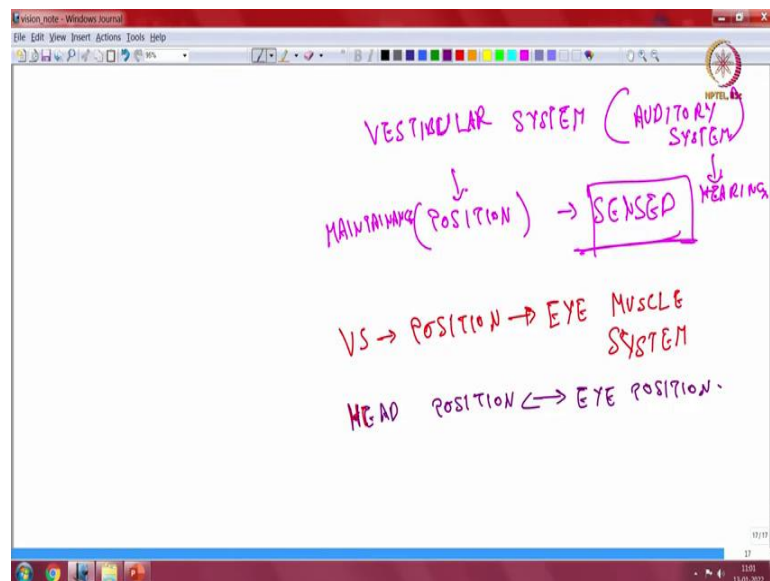 vision_note - Windows Journal
File Edit View Insert Actions Tools Help
96%
B I
NPTEL
VESTIBULAR SYSTEM (AUDITORY
SYSTEM)
HEARING
MAINTAINANCE (POSITION) → SENSED
VS → POSITION → EYE MUSCLE
SYSTEM
HEAD POSITION <-> EYE POSITION.
17/17
17
11:01
13-01-2022